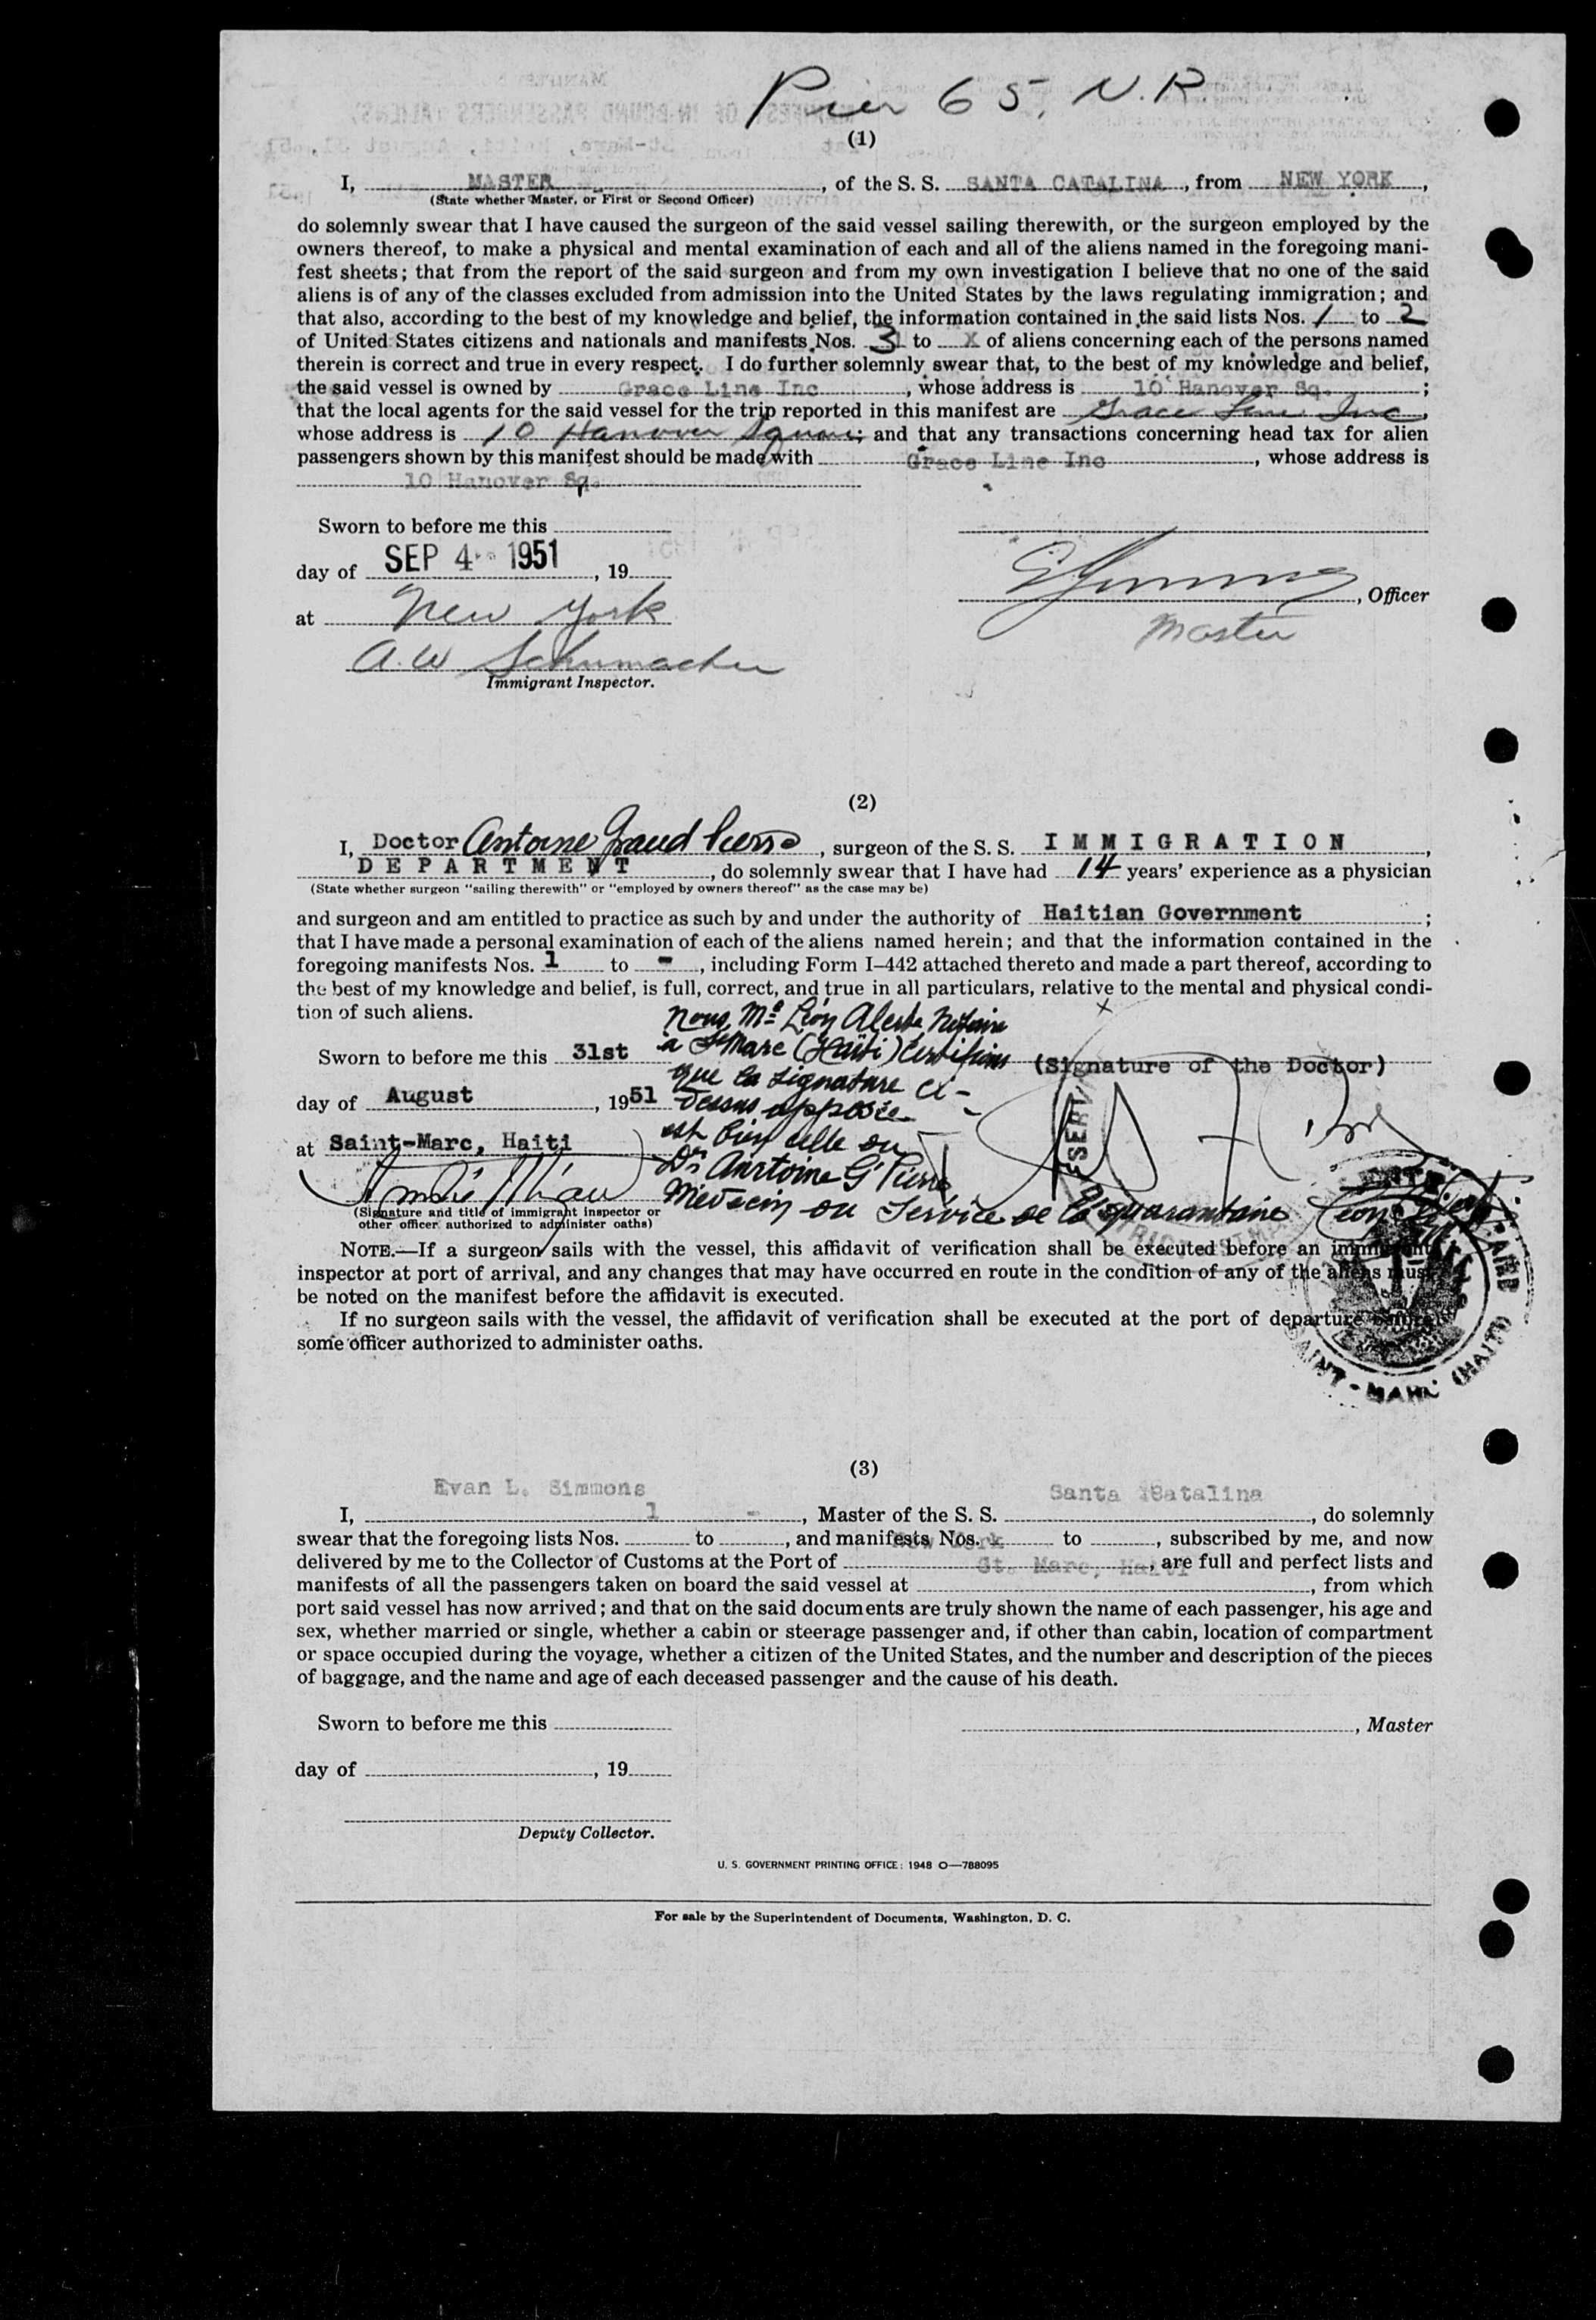 Pier 65, N.R.
(1)
I, MASTER, of the S. S. SANTA CATALINA, from NEW YORK,
(State whether Master, or First or Second Officer)
do solemnly swear that I have caused the surgeon of the said vessel sailing therewith, or the surgeon employed by the
owners thereof, to make a physical and mental examination of each and all of the aliens named in the foregoing mani-
fest sheets; that from the report of the said surgeon and from my own investigation I believe that no one of the said
aliens is of any of the classes excluded from admission into the United States by the laws regulating immigration; and
that also, according to the best of my knowledge and belief, the information contained in the said lists Nos. 1 to 2
of United States citizens and nationals and manifests Nos. 3 to X of aliens concerning each of the persons named
therein is correct and true in every respect. I do further solemnly swear that, to the best of my knowledge and belief,
the said vessel is owned by Grace Line Inc, whose address is 10 Hanover Sq. ;
that the local agents for the said vessel for the trip reported in this manifest are Grace Line Inc,
whose address is 10 Hanover Square; and that any transactions concerning head tax for alien
passengers shown by this manifest should be made with Grace Line Inc, whose address is
10 Hanover Sq.
Sworn to before me this
day of SEP 4 1951, 19
, Officer
at New York
Master
A. W Schumacher
Immigrant Inspector.
(2)
I, Doctor Antoine Graud Pierre, surgeon of the S. S. IMMIGRATION,
DEPARTMENT, do solemnly swear that I have had 14 years' experience as a physician
(State whether surgeon "sailing therewith" or "employed by owners thereof" as the case may be)
and surgeon and am entitled to practice as such by and under the authority of Haitian Government ;
that I have made a personal examination of each of the aliens named herein; and that the information contained in the
foregoing manifests Nos. 1 to -, including Form I-442 attached thereto and made a part thereof, according to
the best of my knowledge and belief, is full, correct, and true in all particulars, relative to the mental and physical condi-
tion of such aliens.
Nous, Me Léon Alerte Notaire
à St Marc (Haïti) certifions
que la signature ci-
dessus apposée
est bien celle du
Dr Anrtoine G Pierre
Médecin du Service de la quarantaine
Sworn to before me this 31st
(Signature of the Doctor)
day of August, 1951
at Saint-Marc, Haiti
(Signature and title of immigrant inspector or
other officer authorized to administer oaths)
SAINT-MARC (HAITI)
NOTE.—If a surgeon sails with the vessel, this affidavit of verification shall be executed before an immigrant
inspector at port of arrival, and any changes that may have occurred en route in the condition of any of the aliens must
be noted on the manifest before the affidavit is executed.
If no surgeon sails with the vessel, the affidavit of verification shall be executed at the port of departure before
some officer authorized to administer oaths.
(3)
Evan L. Simmons Santa Catalina
I, 1 -, Master of the S. S. , do solemnly
swear that the foregoing lists Nos. to , and manifests Nos. to , subscribed by me, and now
New York
delivered by me to the Collector of Customs at the Port of , are full and perfect lists and
St. Marc, Haiti
manifests of all the passengers taken on board the said vessel at , from which
port said vessel has now arrived; and that on the said documents are truly shown the name of each passenger, his age and
sex, whether married or single, whether a cabin or steerage passenger and, if other than cabin, location of compartment
or space occupied during the voyage, whether a citizen of the United States, and the number and description of the pieces
of baggage, and the name and age of each deceased passenger and the cause of his death.
Sworn to before me this
, Master
day of , 19
Deputy Collector.
U. S. GOVERNMENT PRINTING OFFICE: 1948 O—788095
For sale by the Superintendent of Documents, Washington, D. C.